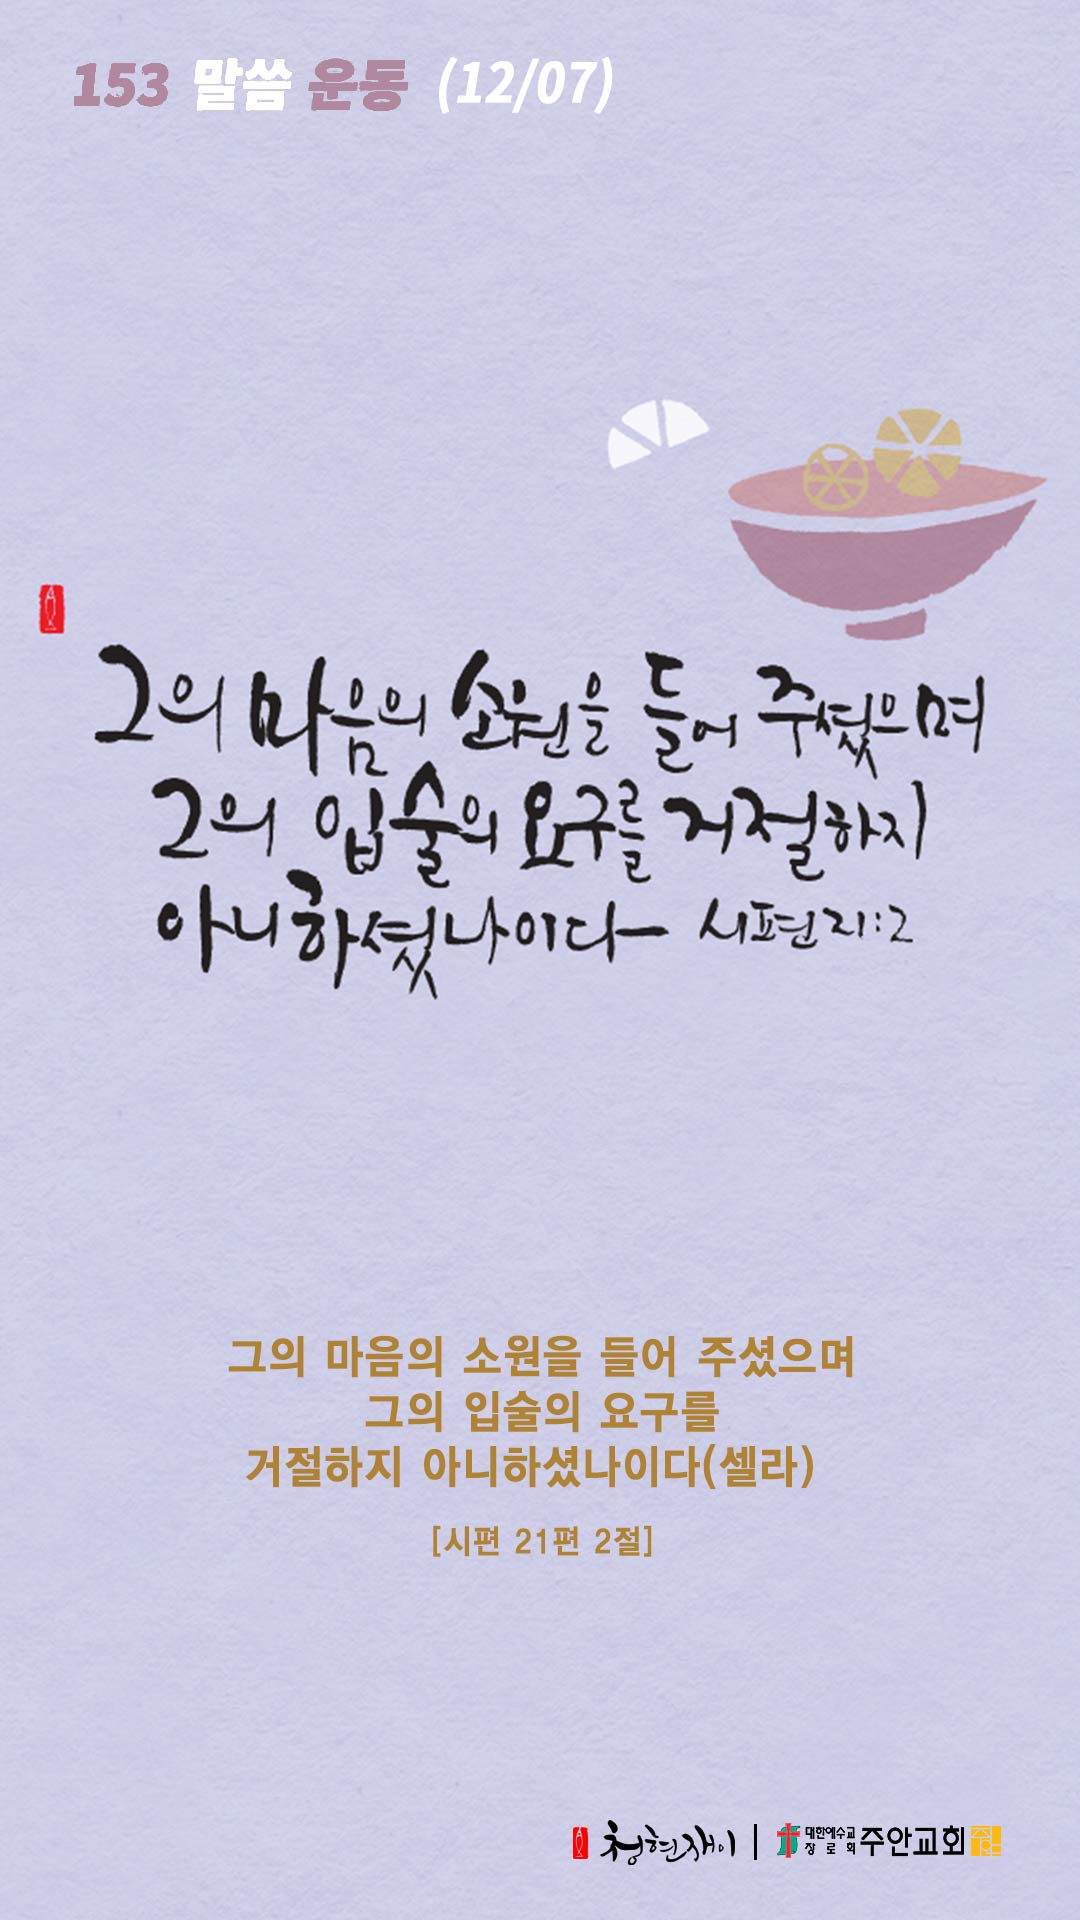 153 말씀 운동 (12/07)
그의 마음의 소원을 들어 주셨으며
그의 입술의 요구를 거절하지
아니하셨나이다- 시편 21:2
그의 마음의 소원을 들어 주셨으며
그의 입술의 요구를
거절하지 아니하셨나이다(셀라)
[시편 21편 2절]
청현재이 | 대한예수교 장로회 주안교회